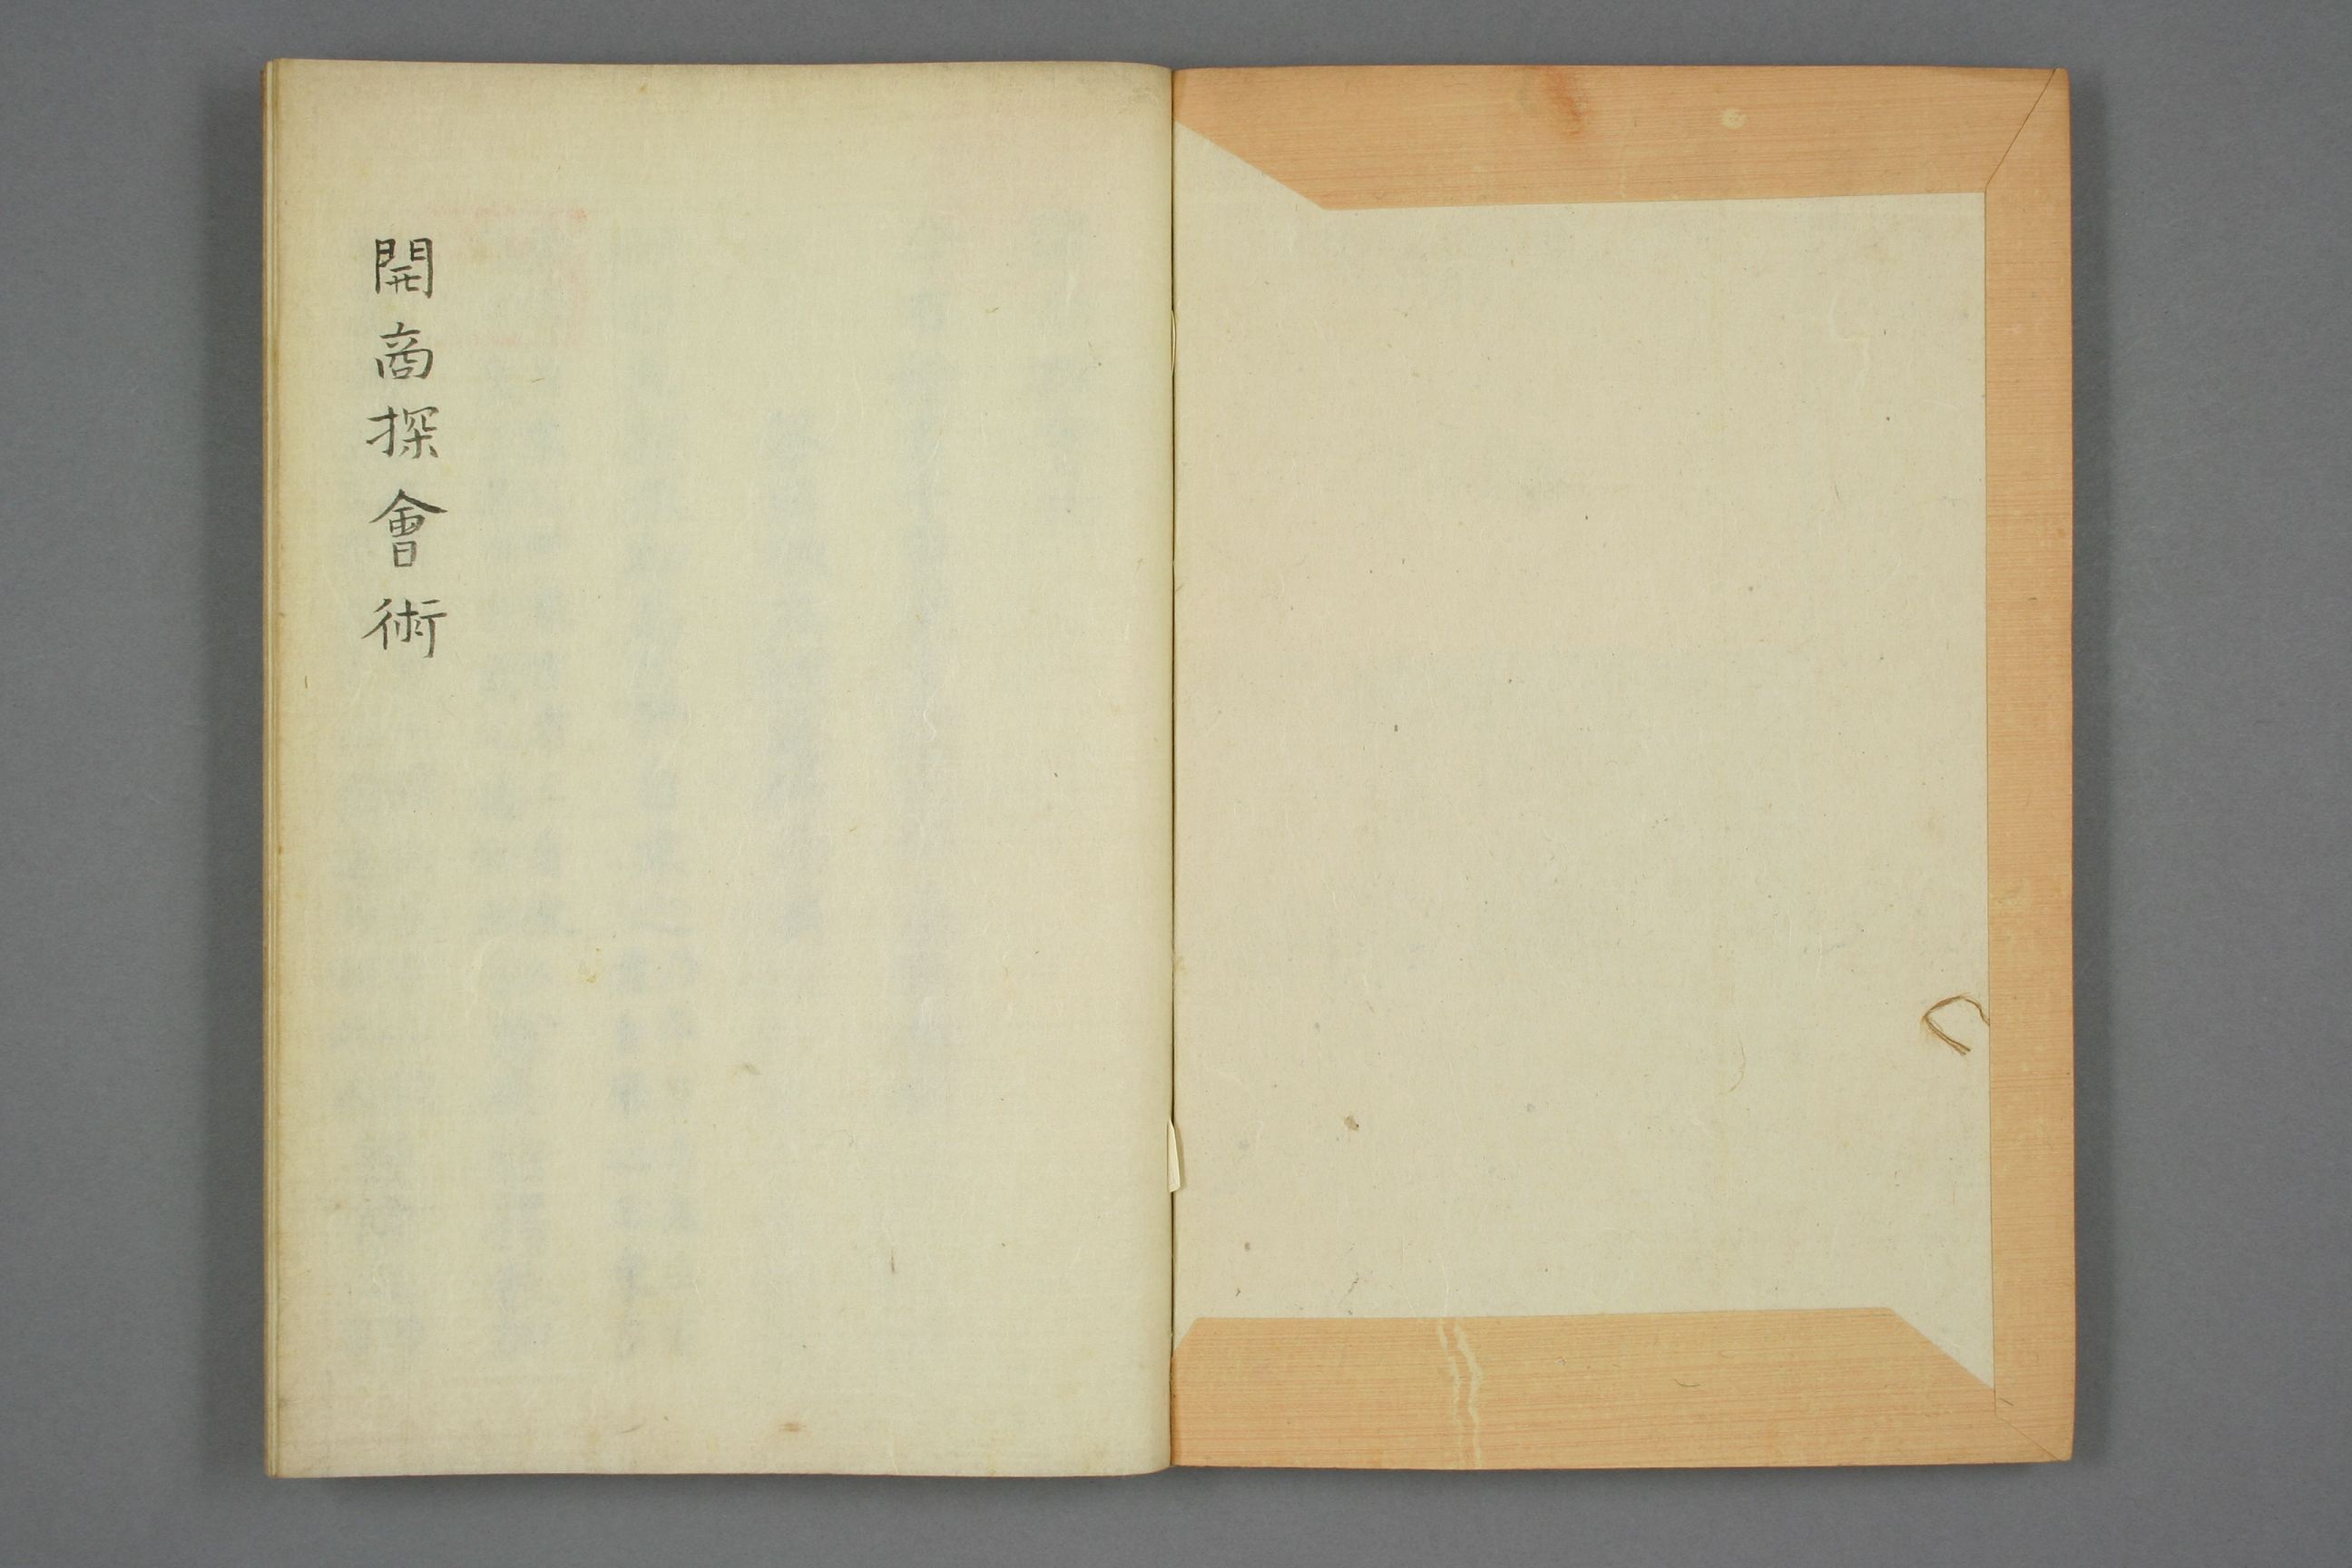 開商探會術